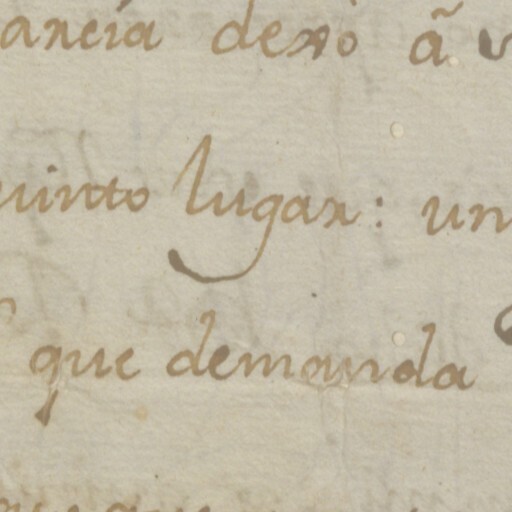 arcia dexó ã
uinto lugar: un
que demanda